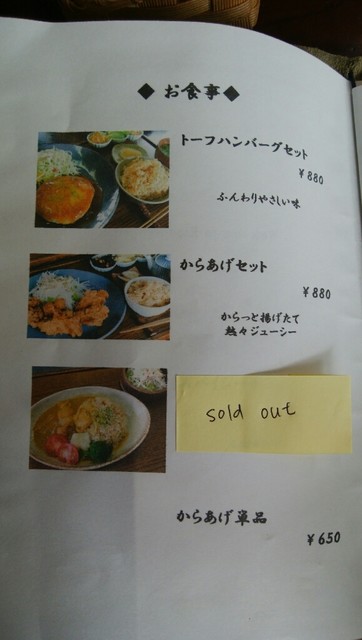 ◆ お食事 ◆
トーフハンバーグセット
￥880
ふんわりやさしい味
からあげセット
￥880
からっと揚げたて
熱々ジューシー
sold out
からあげ単品
￥650